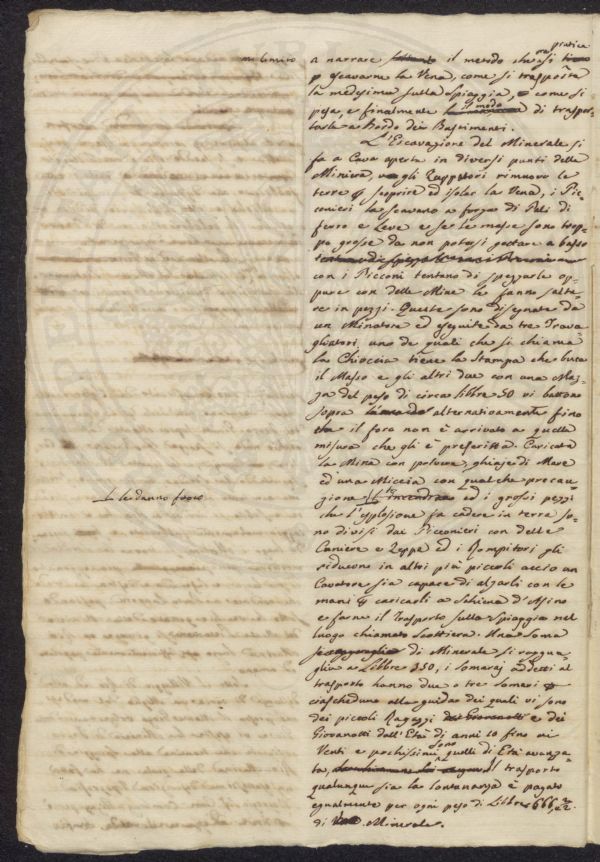 ora pratica
mi limito
a narrare il metodo che si
p escavare la Vena, come si trasporta
la medesima sulla Spiaggia, e come si
pesa, e finalmente il modo di traspor-
tarla a Bordo dei Bastimenti.
L'Escavazione del Minerale si
fa a Cava aperta in diversi punti della
Miniera, gli Zappatori rimuovo le
terre p scoprire ed isolar la Vena, i Pic-
conieri la scavano a forza di Pali di
ferro e Leve e se le masse sono trop-
po grosse da non potersi gettare a basso
con i Picconi tentano di spezzarle op-
pure con delle Mine le fanno salta-
re in pezzi. Queste sono disegnate da
un Minatore ed eseguite da tre Trava-
gliatori, uno de quali che si chiama
la Chioccia tiene la Stampa che buca
il Masso e gli altri due con una Maz-
za del peso di circa libbre 50 vi battono
sopra alternativamente fino
che il foro non è arrivato a quella
misura che gli è preferitta. Caricata
la Mina con polvere, ghiaje di Mare
ed una Miccia con qualche precau-
zione ed i grossi pezzi
le danno fuoco
che l'esplosione fa cadere in terra so-
no divisi dai Picconieri con delle
Caniere e Zeppe ed i Rompitori gli
riducono in altri più piccoli acciò un
Cavatore sia capace di alzarli con le
mani p caricarli a Schiena d'Asino
e farne il Trasporto sulla Spiaggia nel
luogo chiamato Scottiera. Una Soma
di Minerale si raggua-
glia a Libbre 350, i Somaraj addetti al
trasporto hanno due o tre Somari
ciascheduno alla guida dei quali vi sono
dei piccoli Ragazzi e dei
Giovanotti dall'Età di anni 10 fino ai
Venti e pochissimi sono quelli di Età avanza-
ta, il trasporto
qualunque sia la lontananza è pagato
egualmente per ogni peso di Libbre 666,
di Minerale.